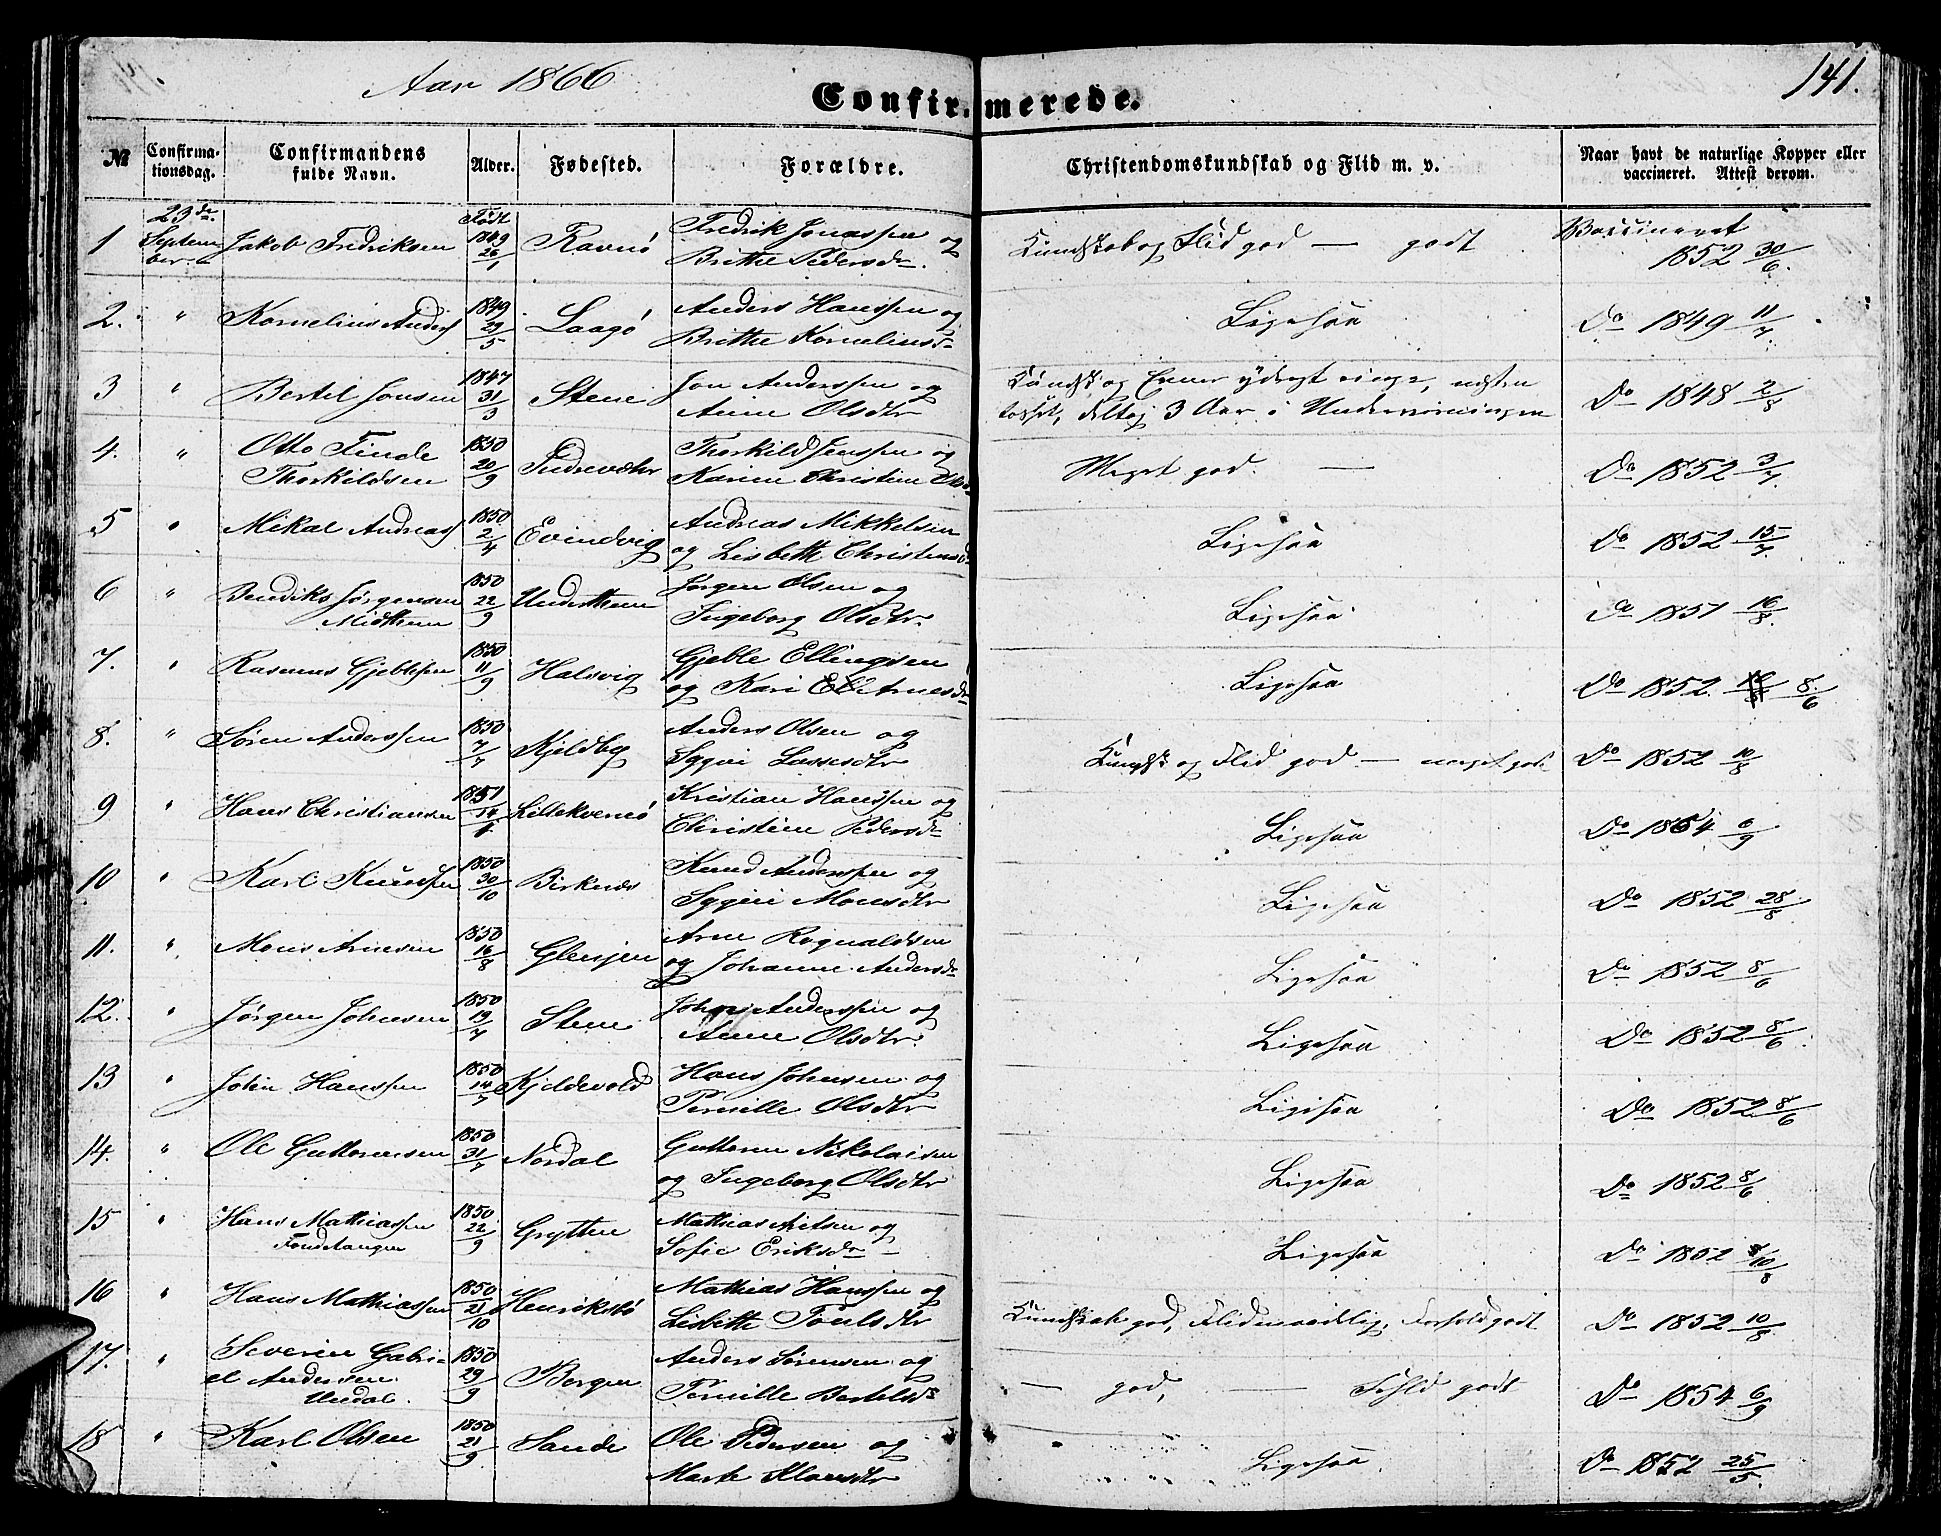 Aar 1866
Confirmerede.
141.
№
Confirma-
tionsdag.
Confirmandens
fulde Navn.
Alder.
Fødested.
Forældre.
Christendomskundskab og Flid m. v.
Naar havt de naturlige Kopper eller
vaccineret. Attest derom.
1 23de Septem ber Jakob Fredriksen Født 1849 26/1 Ravnø Fredrik Jonassen og Brithe Pedersdr. Kundskab og Flid god — godt Vaccineret 1852 30/6.
2. " Kornelius Anders 1849 29/5 Laagø Anders Hanssen og Brithe Kornelius Ligesaa Do 1849 11/7.
3 " Bertil Jonsen 1847 31/3 Stene Jon Anderssen og Anne Olsdtr Kundsk og Evner yderst ringe, næsten tosset, deltog 3 Aar i Undervisningen Do 1848 2/8
4. " Otto Finde Thorkildsen 1850 20/9 Thorkild Jenssen og Karine Christine Meget god. — Do 1852 3/7.
5 " Mikal Andreas 1850 2/4 Evindvig Andreas Mikkelsen og Lisbeth Ligesaa Do 1852 15/7.
6 " Bendiks Jørgensen Midttun 1850 22/9 Underthun Jørgen Olsen og Ingeborg Olsdtr. Ligesaa Do 1851 16/8.
7. " Rasmus Gjeblesen 1850 11/9 Halsvig Gjeble Ellingsen og Kari Arnesdr Ligesaa Do 1852. 8/6
8. " Søren Anderssen 1850 7/7 Kjeldby Anders Olsen og Sygni Lassesdtr Kundsk og Flid god — meget godt Do 1852 10/8
9 " Hans Christiansen 1851 14/1 Lillekvernø Kristian Hanssen og Christine Pedersdr Ligesaa Do 1854 6/9
10 " Karl Knudsen 1850 30/10 Birknes Knud Anderssen og Sygni Monsdtr Ligesaa Do 1852 28/8
11. " Mons Arnesen 1850 16/8 Glenjen Arne Rognaldsen og Johanne Andersdr Ligesaa Do 1852 8/6
12. " Jørgen Johnsen 1850 19/7 Stene John Anderssen og Anne Olsdtr. Ligesaa Do 1852 8/6
13 " John Hanssen 1850 14/7 Kjeldevold Hans Johnsen og Pernille Olsdtr Ligesaa Do 1852 8/6
14. " Ole Guttormsen 1850 31/7 Nordal Guttorm Nikolaisen og Ingeborg Olsdtr Ligesaa Do 1852 8/6
15 " Hans Mathiassen 1850 22/9 Grytten Mathias Nilsen og Sofie Eriksdr — Ligesaa Do 1852 10/8
16 " Hans Mathiassen 1850 21/10 Henriksbø Mathias Hanssen og Lisbeth Poulsdtr Kundskab god, Flid maadelig, Forhold godt Do 1852 10/8
17. " Severin Gabri- el Andersen Undal. 1850 29/9 Bergen Anders Sørensen og Pernille Bertelsdr — god, — Forhld godt Do 1854 6/9
18 " Karl Olsen 1850 21/9. Sande Ole Pedersen og Marte Ligesaa Do 1852 25/5.